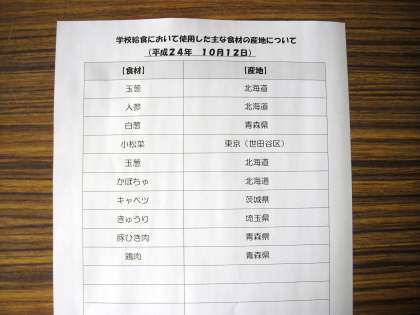 学校給食において使用した主な食材の産地について
(平成24年 10月12日)
【食材】 【産地】
玉葱 北海道
人参 北海道
白葱 青森県
小松菜 東京(世田谷区)
玉葱 北海道
かぼちゃ 北海道
キャベツ 茨城県
きゅうり 埼玉県
豚ひき肉 青森県
鶏肉 青森県